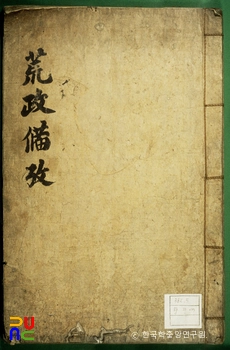 荒政備攷
한국학중앙연구원